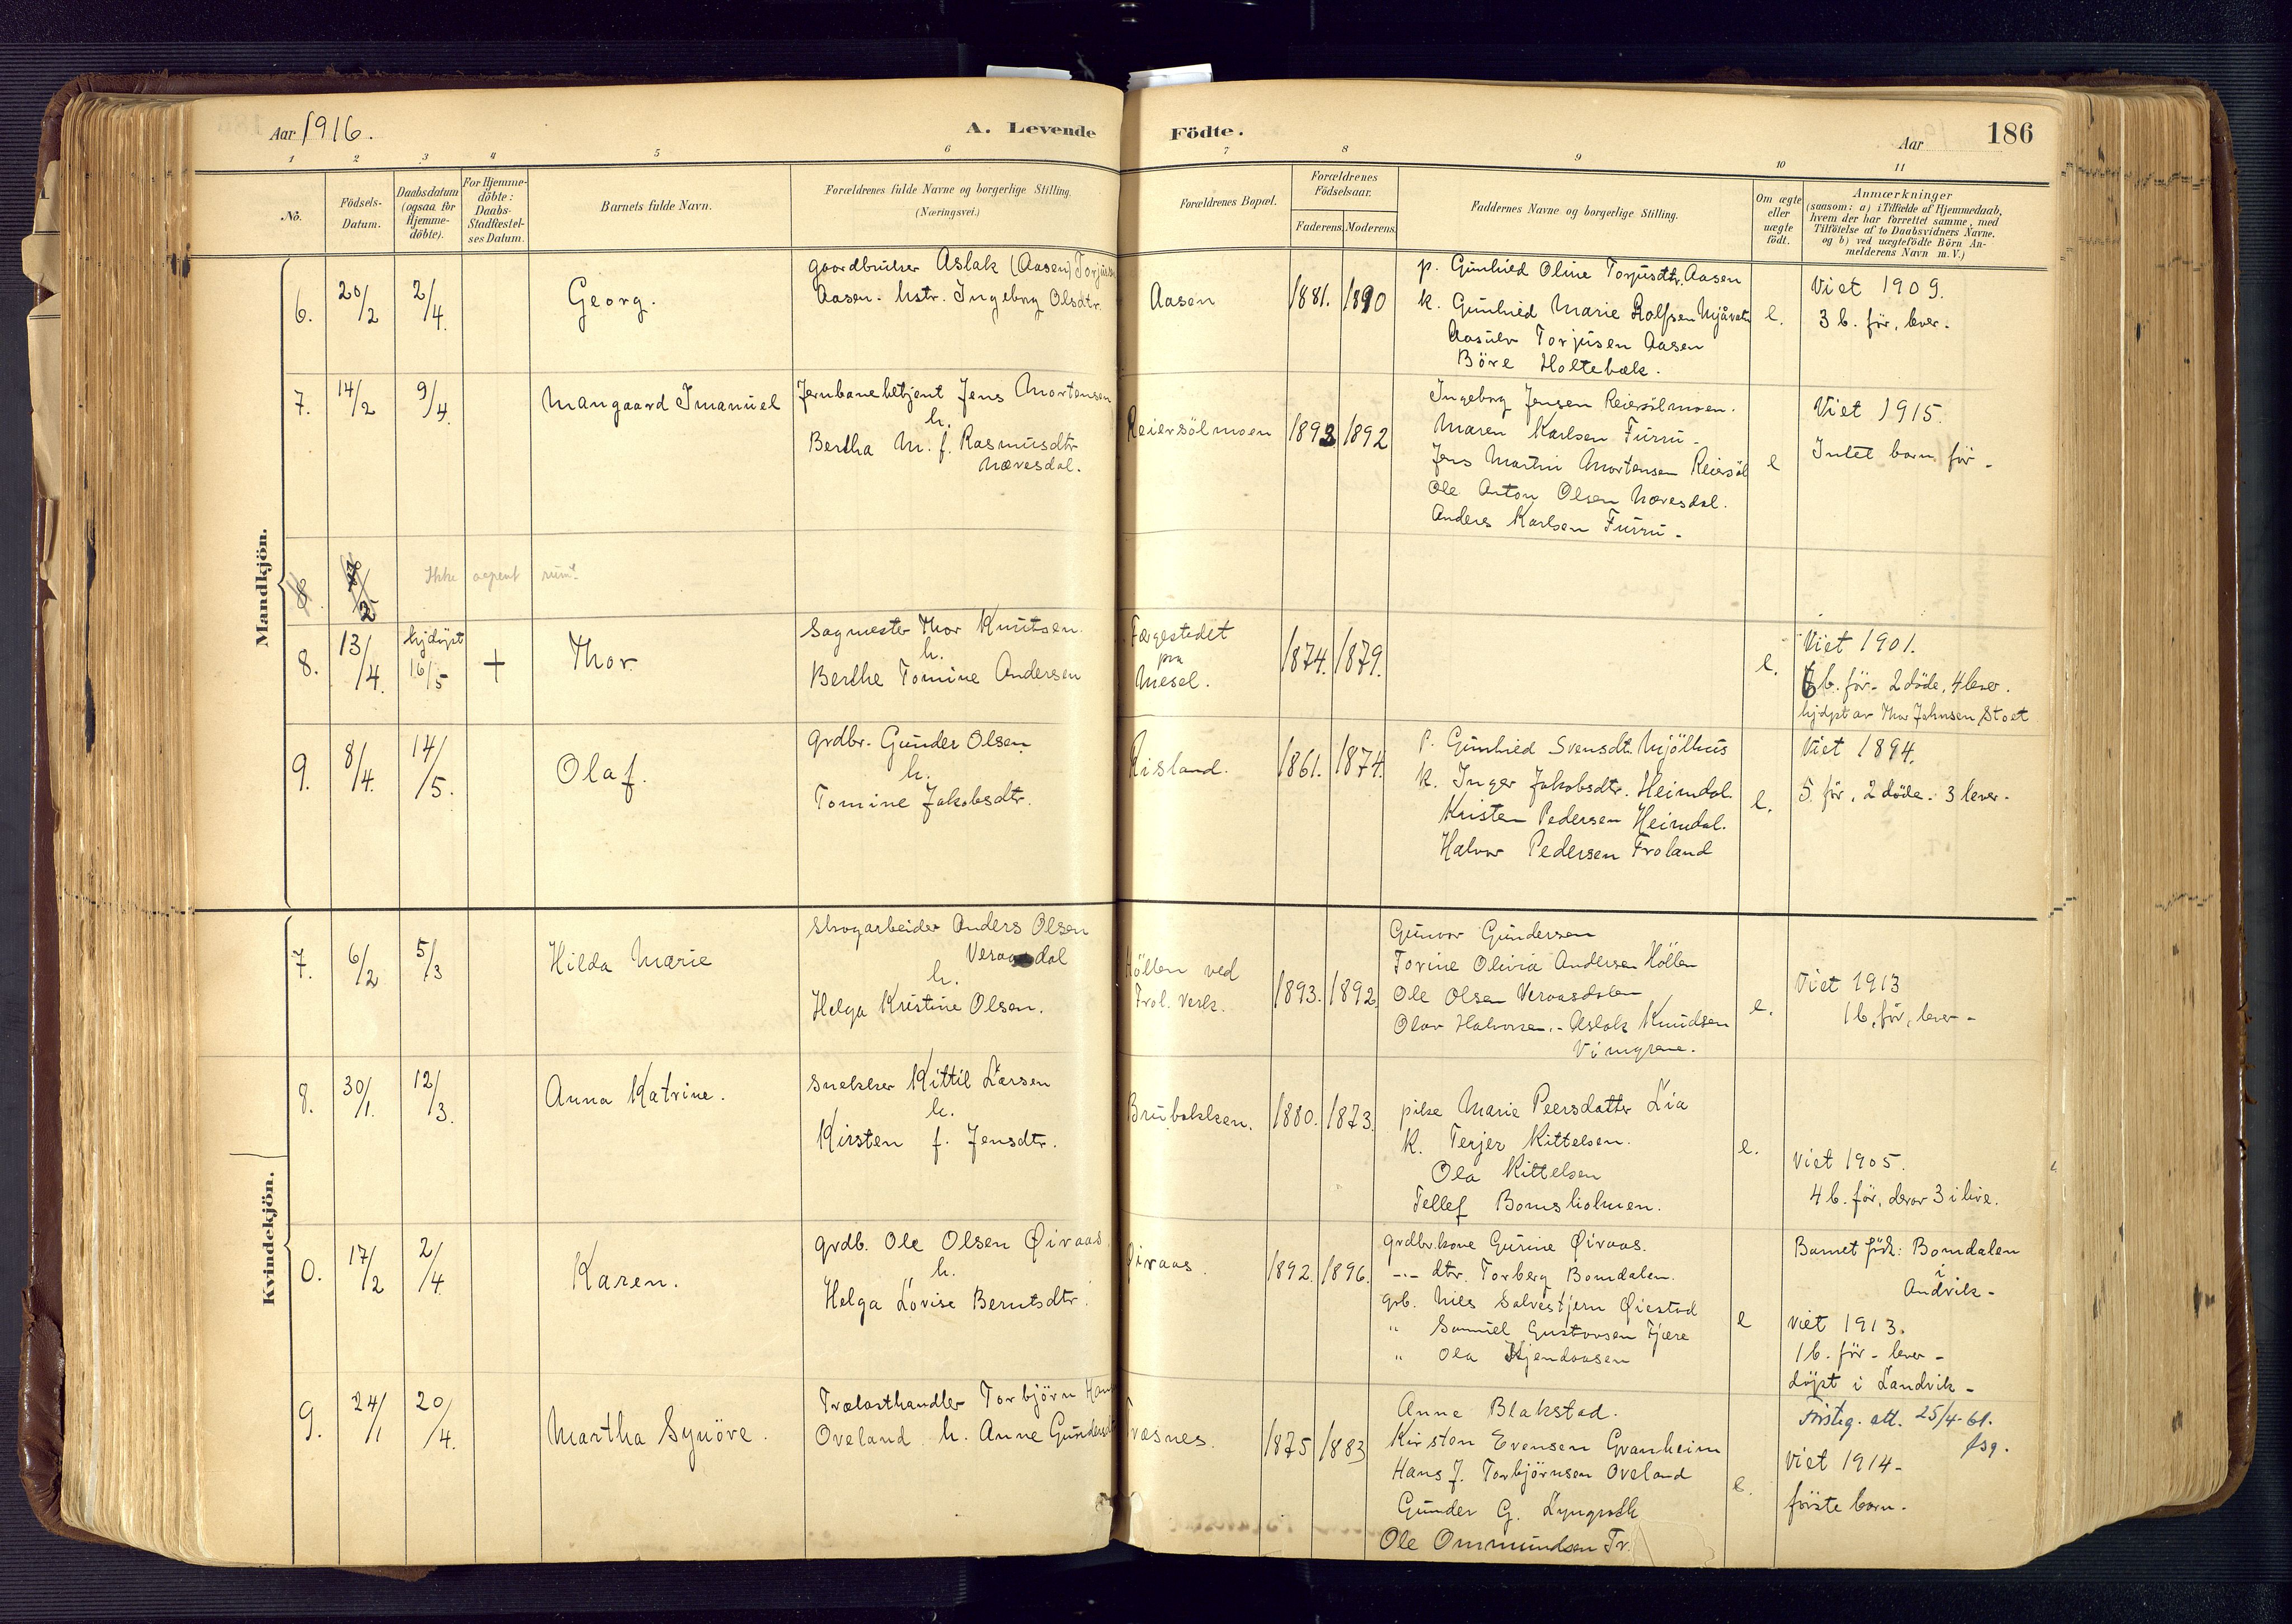 Aar 1916.
A. Levende
Födte.
Aar
186
1 2 3 4 5 6 7 8 9 10 11
No.
Födsels-
Datum.
Daabsdatum
(ogsaa for
Hjemme-
döbte).
For Hjemme-
döbte:
Daabs-
Stadfæstel-
ses Datum.
Barnets fulde Navn.
Forældrenes fulde Navne og borgerlige Stilling.
(Næringsvei.)
Forældrenes Bopæl.
Forældrenes
Födselsaar.
Faderens. Moderens.
Faddernes Navne og borgerlige Stilling.
Om ægte
eller
uægte
födt.
Anmærkninger
(saasom: a) i Tilfælde af Hjemmedaab,
hvem der har forrettet samme, med
Tilföielse af to Daabsvidners Navne.
og b) ved uægtefödte Börn An-
melderens Navn m.V.)
Mandkjön.
6. 20/2 2/4. Georg.
gaardbruker Aslak (Aasen) Torjusen
Aasen. hstr. Ingeborg Olsdtr.
Aasen 1881. 1890
p. Gunhild Oline Torjusdtr. Aasen
k. Gunhild Marie Rolfsen Mjåvatn
Aasulv Torjusen Aasen
Böre Holtebæk.
e.
Viet 1909.
3 b. för, lever.
7. 14/2 9/4. Mangaard Imanuel
Jernbanebetjent Jens Mortensen
h.
Bertha M. f. Rasmusdtr
Nævesdal.
Reiersölmoen 1893 1892
Ingeborg Jensen Reiersölmoen.
Maren Karlsen Furru.
Jens Martin Mortensen Reiersöl
Ole Anton Olsen Nævesdal.
Anders Karlsen Furru.
e
Viet 1915.
Intet barn för.
8. /2 Ikke
8. 13/4. hjdöpt 16/5 + Thor
Sagmester Thor Knutsen.
h.
Berthe Tomine Andersen
Færgestedet
paa
Mesel.
1874. 1879.
e.
Viet 1901.
6 b. för. 2 döde, 4 lever.
hjdpt av Thor Johnsen Stoet
9. 8/4. 14/5. Olaf.
grdbr. Gunder Olsen
h.
Tomine Jakobsdtr.
Risland. 1861. 1874.
p. Gunhild Svensdt. Mjölhus
k. Inger Jakobsdtr. Heimdal.
Kristen Pedersen Heimdal.
Halvor Pedersen Froland
e.
Viet 1894.
5 för, 2 döde. 3 lever.
Kvindekjön.
7. 6/2 5/3 Hilda Marie
Skogarbeider Anders Olsen
Veraasdal
h.
Helga Kristine Olsen.
Höllen ved
Frol. Verk.
1893. 1892.
Gunvor Gundersen
Torine Olivia Andersen Höllen
Ole Olsen Veraasdalen
Olav Halvorsen. - Aslak Knudsen
Vimyrene.
e.
Viet 1913
1 b. för, lever.
8. 30/1. 12/3. Anna Katrine.
Snekker Kittil Larsen
h.
Kirsten f. Jensdtr.
Brubakken. 1880. 1873.
pike Marie Peersdatter Lia
K. Terjer Kittelsen.
Ola Kittelsen
Tellef Bomsholmen.
e.
Viet 1905.
4 b. för, derav 3 i live.
0. 17/2 2/4 Karen.
grdb. Ole Olsen Øivaas.
h.
Helga Lovise Berntsdtr.
Øivaas. 1892. 1896.
grdbr.kone Gurine Øivaas.
-"- dtr. Torberg Bomdalen.
grb. Nils Salvestjern Øiestad
" Samuel Gustavsen Fjære
" Ola Skjendaasen
e
Barnet född: Bomdalen
i
Andvik.
Viet 1913.
1 b. för - lever.
döpt i Landvik.
9. 24/1 20/4. Martha Synöve.
Trælasthandler Torbjörn Hans
Oveland h. Anne Gundersdtr
Træsnes. 1875 1883
Anne Blakstad.
Kirsten Evensen Granheim
Hans J. Torbjörnsen Oveland
Gunder G. Lyngroth
Ole Ommundsen Tr.
e.
att. 25/4-61.
Viet 1914.
förste barn.